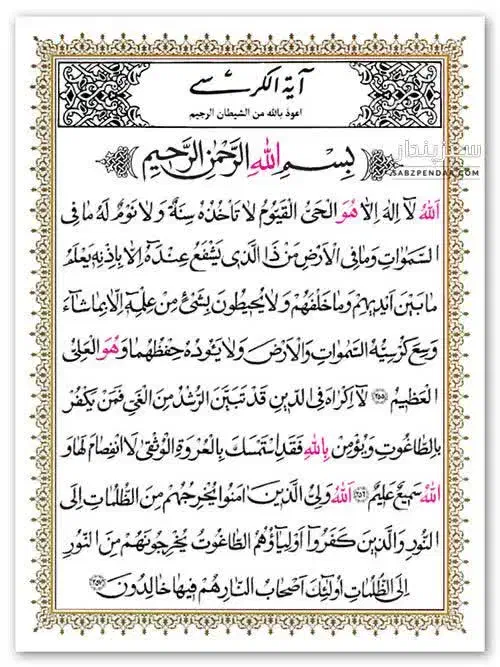 آیة الکرسے
اعوذ بالله من الشیطان الرجیم
بِسْمِ اللهِ الرَّحْمٰنِ الرَّحِیمِ
سبزپندار
SABZPENDAR.COM
اَللهُ لَا اِلٰهَ اِلَّا هُوَ الْحَیُّ الْقَیُّومُ لَا تَأْخُذُهُ سِنَةٌ وَلَا نَوْمٌ لَهُ مَا فِی
السَّمٰوَاتِ وَمَا فِی الْاَرْضِ مَنْ ذَا الَّذِی یَشْفَعُ عِنْدَهُ اِلَّا بِاِذْنِهِ یَعْلَمُ
مَا بَیْنَ اَیْدِیهِمْ وَمَا خَلْفَهُمْ وَلَا یُحِیطُونَ بِشَیْءٍ مِنْ عِلْمِهِ اِلَّا بِمَا شَاءَ
وَسِعَ کُرْسِیُّهُ السَّمٰوَاتِ وَالْاَرْضَ وَلَا یَئُودُهُ حِفْظُهُمَا وَهُوَ الْعَلِیُّ
الْعَظِیمُ ﴿۲۵۵﴾ لَا اِکْرَاهَ فِی الدِّینِ قَدْ تَبَیَّنَ الرُّشْدُ مِنَ الْغَیِّ فَمَنْ یَکْفُرْ
بِالطَّاغُوتِ وَیُؤْمِنْ بِاللهِ فَقَدِ اسْتَمْسَکَ بِالْعُرْوَةِ الْوُثْقٰی لَا انْفِصَامَ لَهَا وَ
اللهُ سَمِیعٌ عَلِیمٌ ﴿۲۵۶﴾ اَللهُ وَلِیُّ الَّذِینَ اٰمَنُوا یُخْرِجُهُمْ مِنَ الظُّلُمَاتِ اِلَی
النُّورِ وَالَّذِینَ کَفَرُوا اَوْلِیَاؤُهُمُ الطَّاغُوتُ یُخْرِجُونَهُمْ مِنَ النُّورِ
اِلَی الظُّلُمَاتِ اُولٰئِکَ اَصْحَابُ النَّارِ هُمْ فِیهَا خَالِدُونَ ﴿۲۵۷﴾